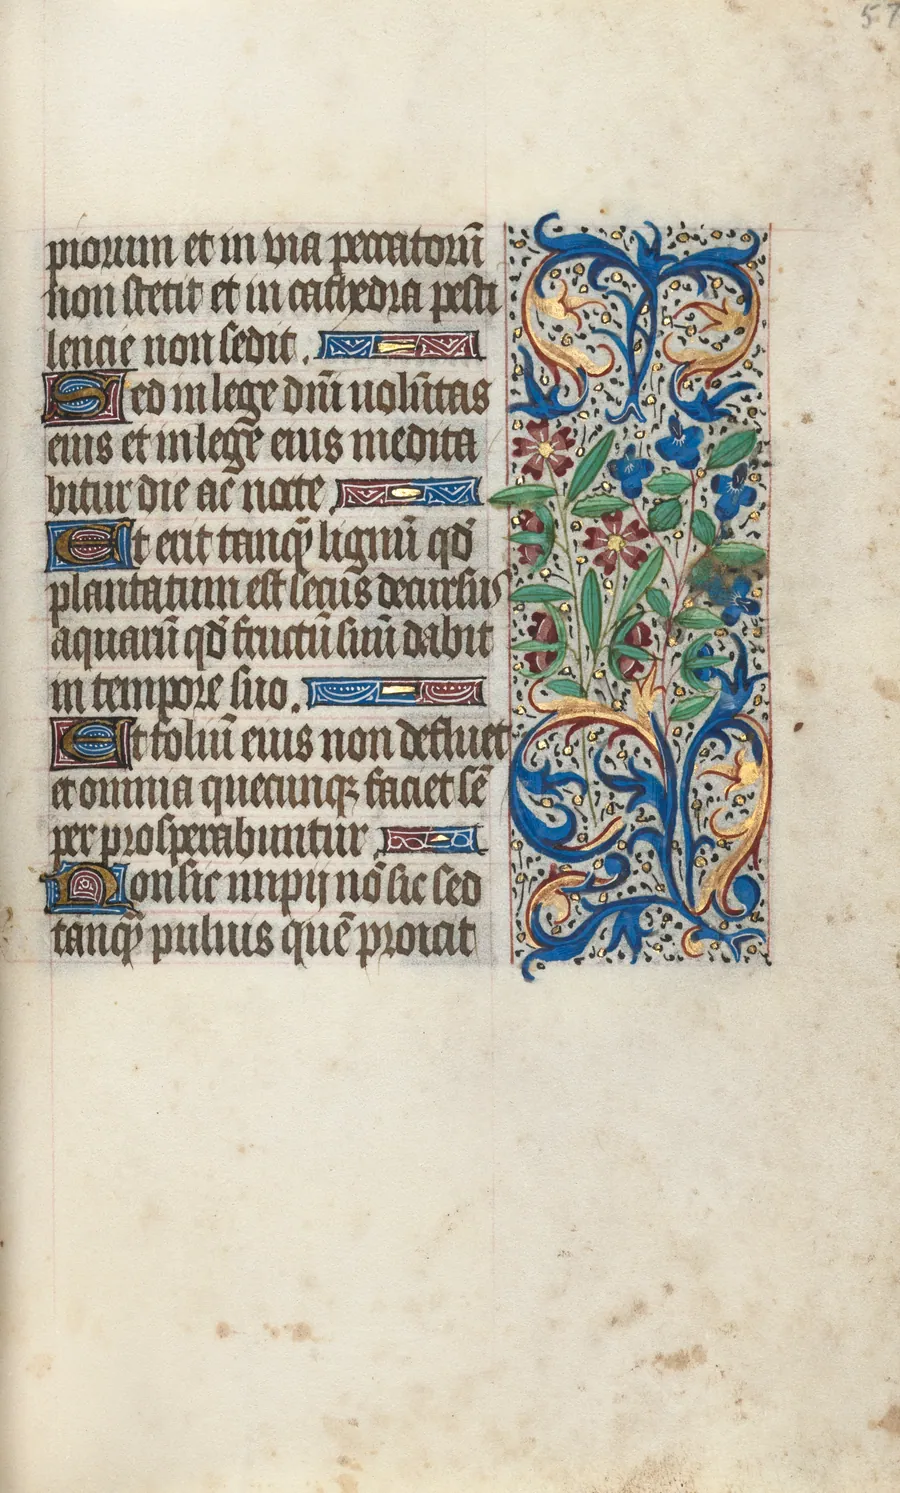 57
piorum et in via peccatorū
non stetit et in cathedra pesti
lencie non sedit .
Sed in lege dn̄i uolūtas
eius et in lege eius medita
bitur die ac nocte
Et erit tanqȝ lignū qd̄
plantatum est secus decursus
aquarū qd̄ fructū suū dabit
in tempore suo .
Et foliū eius non defluet
et omnia quecunqȝ faciet sē
per prosperabuntur
Non sic impij nō sic sed
tanqȝ puluis quē proicit